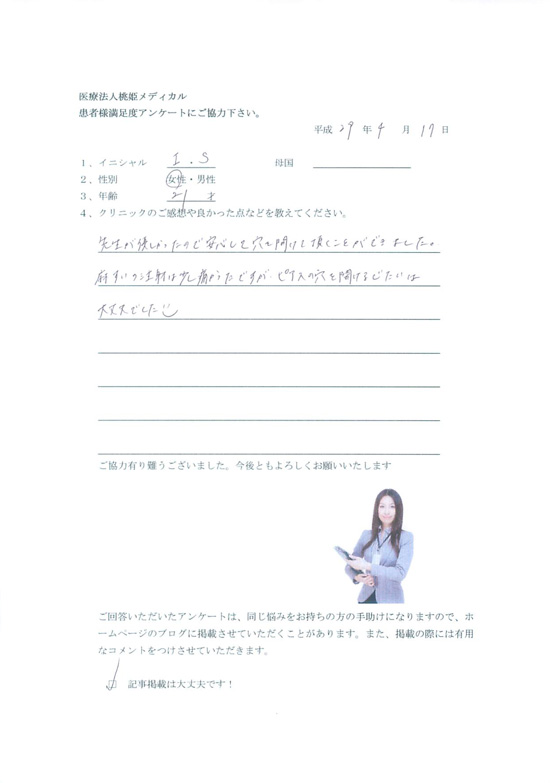 医療法人桃姫メディカル
患者様満足度アンケートにご協力下さい。
平成 29 年 4 月 17 日
1、イニシャル I.S 母国
2、性別 女性・男性
3、年齢 21 才
4、クリニックのご感想や良かった点などを教えてください。
先生が優しかったので安心して穴を開けて頂くことができました。
麻すいの注射は少し痛かったですが、ピアスの穴を開けるじたいは
大丈夫でした
ご協力有り難うございました。今後ともよろしくお願いいたします
ご回答いただいたアンケートは、同じ悩みをお持ちの方の手助けになりますので、ホ
ームページのブログに掲載させていただくことがあります。また、掲載の際には有用
なコメントをつけさせていただきます。
□ 記事掲載は大丈夫です！